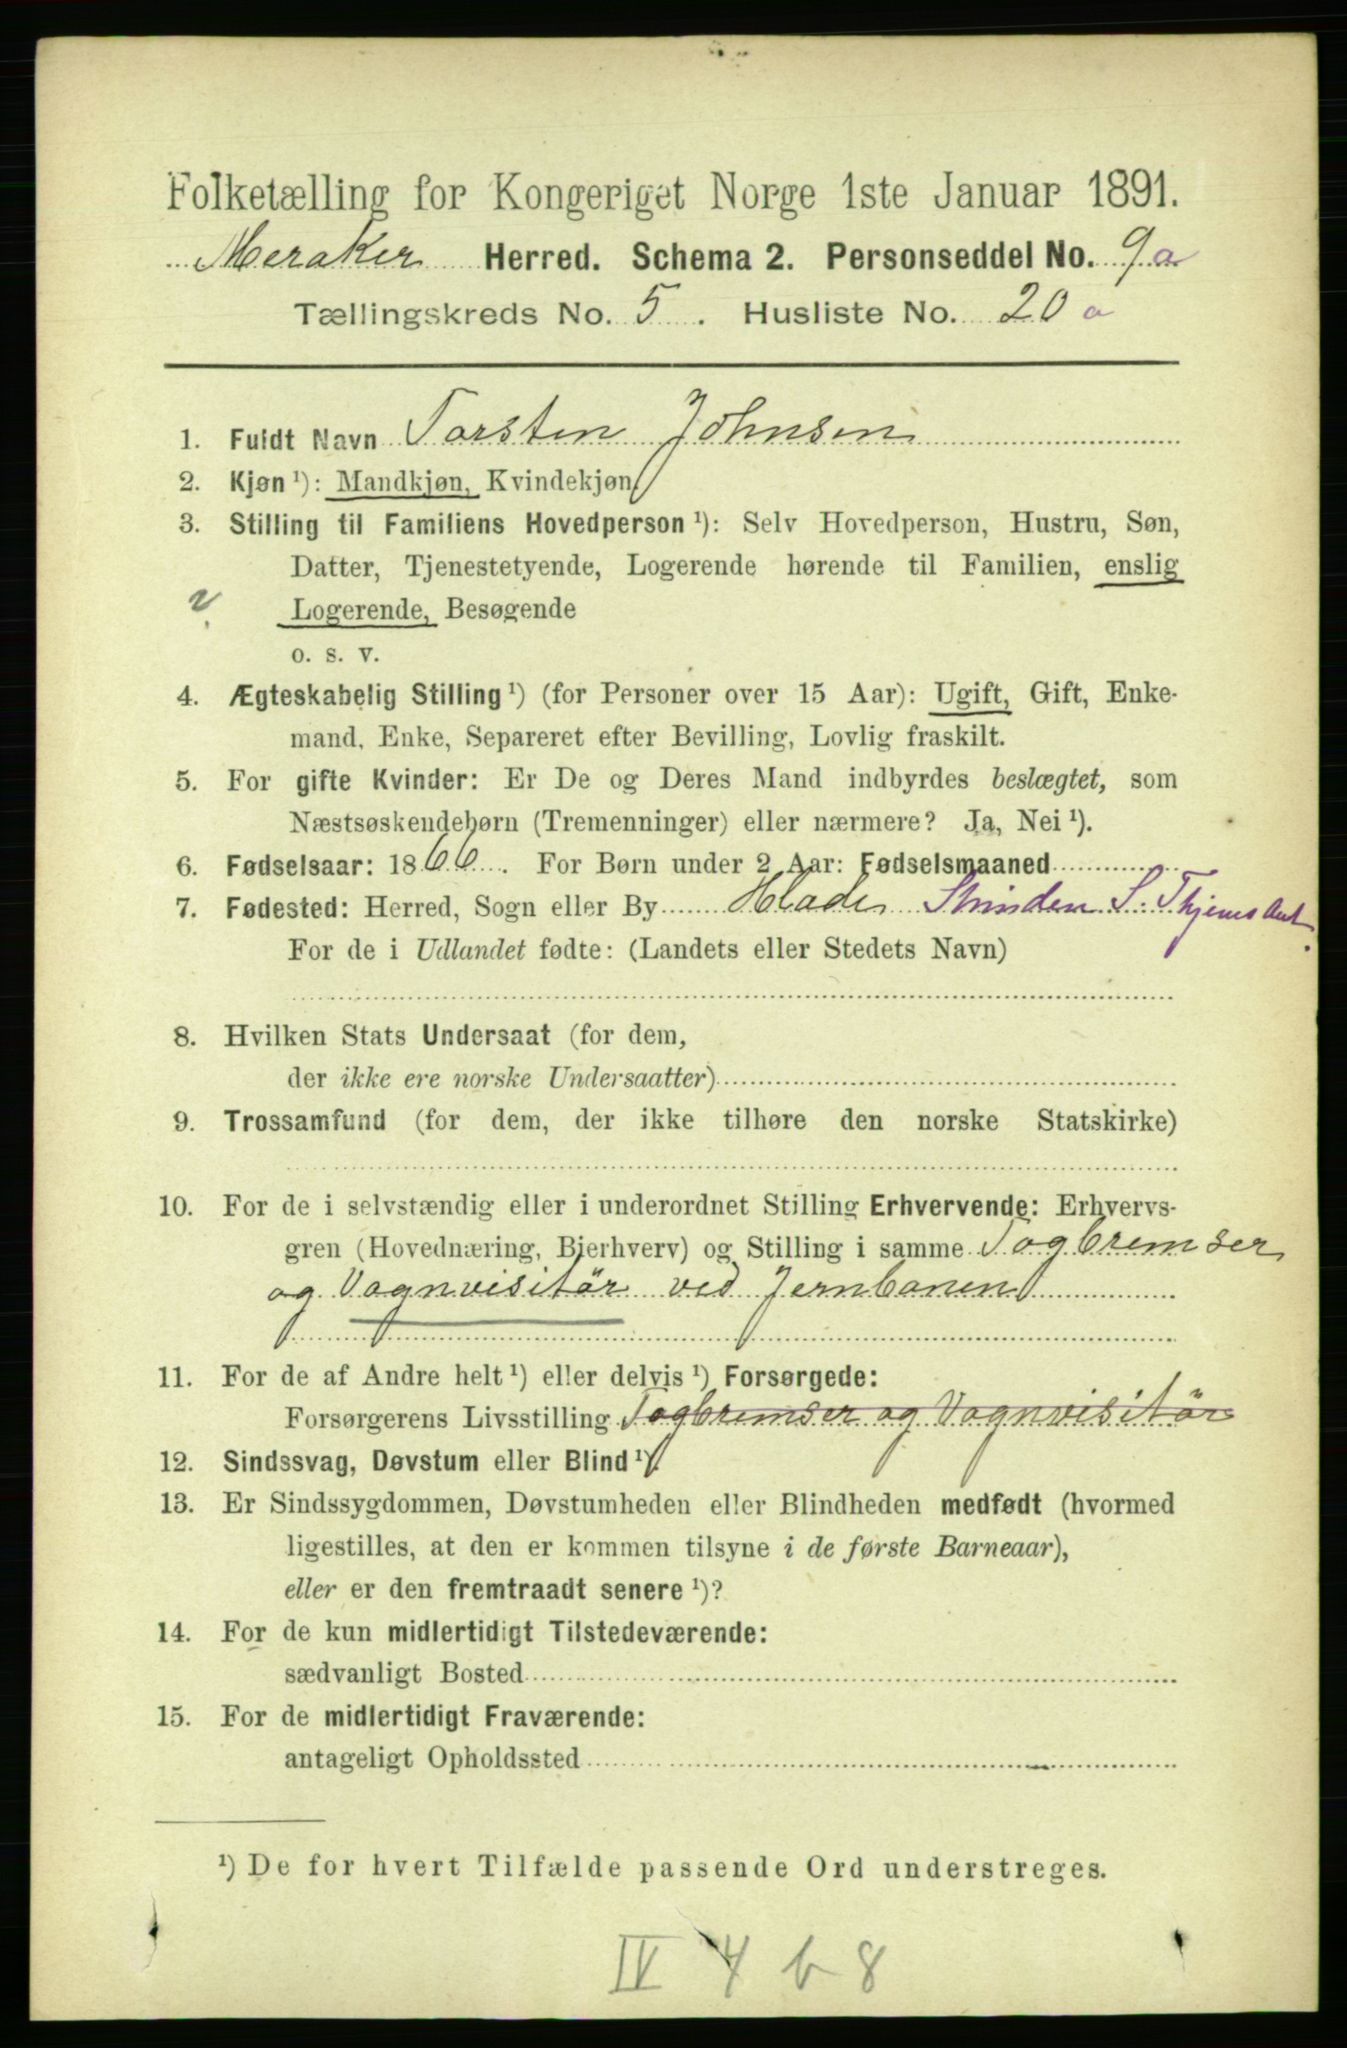 Folketælling for Kongeriget Norge 1ste Januar 1891.
Meraker Herred. Schema 2. Personseddel No. 9a
Tællingskreds No. 5. Husliste No. 20 a
1. Fuldt Navn Torsten Johnsen
2. Kjøn ¹): Mandkjøn, Kvindekjøn
3. Stilling til Familiens Hovedperson ¹): Selv Hovedperson, Hustru, Søn,
Datter, Tjenestetyende, Logerende hørende til Familien, enslig
Logerende, Besøgende
o. s. v.
4. Ægteskabelig Stilling ¹) (for Personer over 15 Aar): Ugift, Gift, Enke-
mand, Enke, Separeret efter Bevilling, Lovlig fraskilt.
5. For gifte Kvinder: Er De og Deres Mand indbyrdes beslægtet, som
Næstsøskendebørn (Tremenninger) eller nærmere? Ja, Nei ¹).
6. Fødselsaar: 1866. For Børn under 2 Aar: Fødselsmaaned
7. Fødested: Herred, Sogn eller By Hlade Strinden S. Thjems Amt.
For de i Udlandet fødte: (Landets eller Stedets Navn)
8. Hvilken Stats Undersaat (for dem,
der ikke ere norske Undersaatter)
9. Trossamfund (for dem, der ikke tilhøre den norske Statskirke)
10. For de i selvstændig eller i underordnet Stilling Erhvervende: Erhvervs-
gren (Hovednæring, Bierhverv) og Stilling i samme Togbremser
og Vognvisitör ved Jernbanen
11. For de af Andre helt ¹) eller delvis ¹) Forsørgede:
Forsørgerens Livsstilling Togbremser og Vognvisitör
12. Sindssvag, Døvstum eller Blind ¹).
13. Er Sindssygdommen, Døvstumheden eller Blindheden medfødt (hvormed
ligestilles, at den er kommen tilsyne i de første Barneaar),
eller er den fremtraadt senere ¹)?
14. For de kun midlertidigt Tilstedeværende:
sædvanligt Bosted
15. For de midlertidigt Fraværende:
antageligt Opholdssted
¹) De for hvert Tilfælde passende Ord understreges.
IV 4 b 8